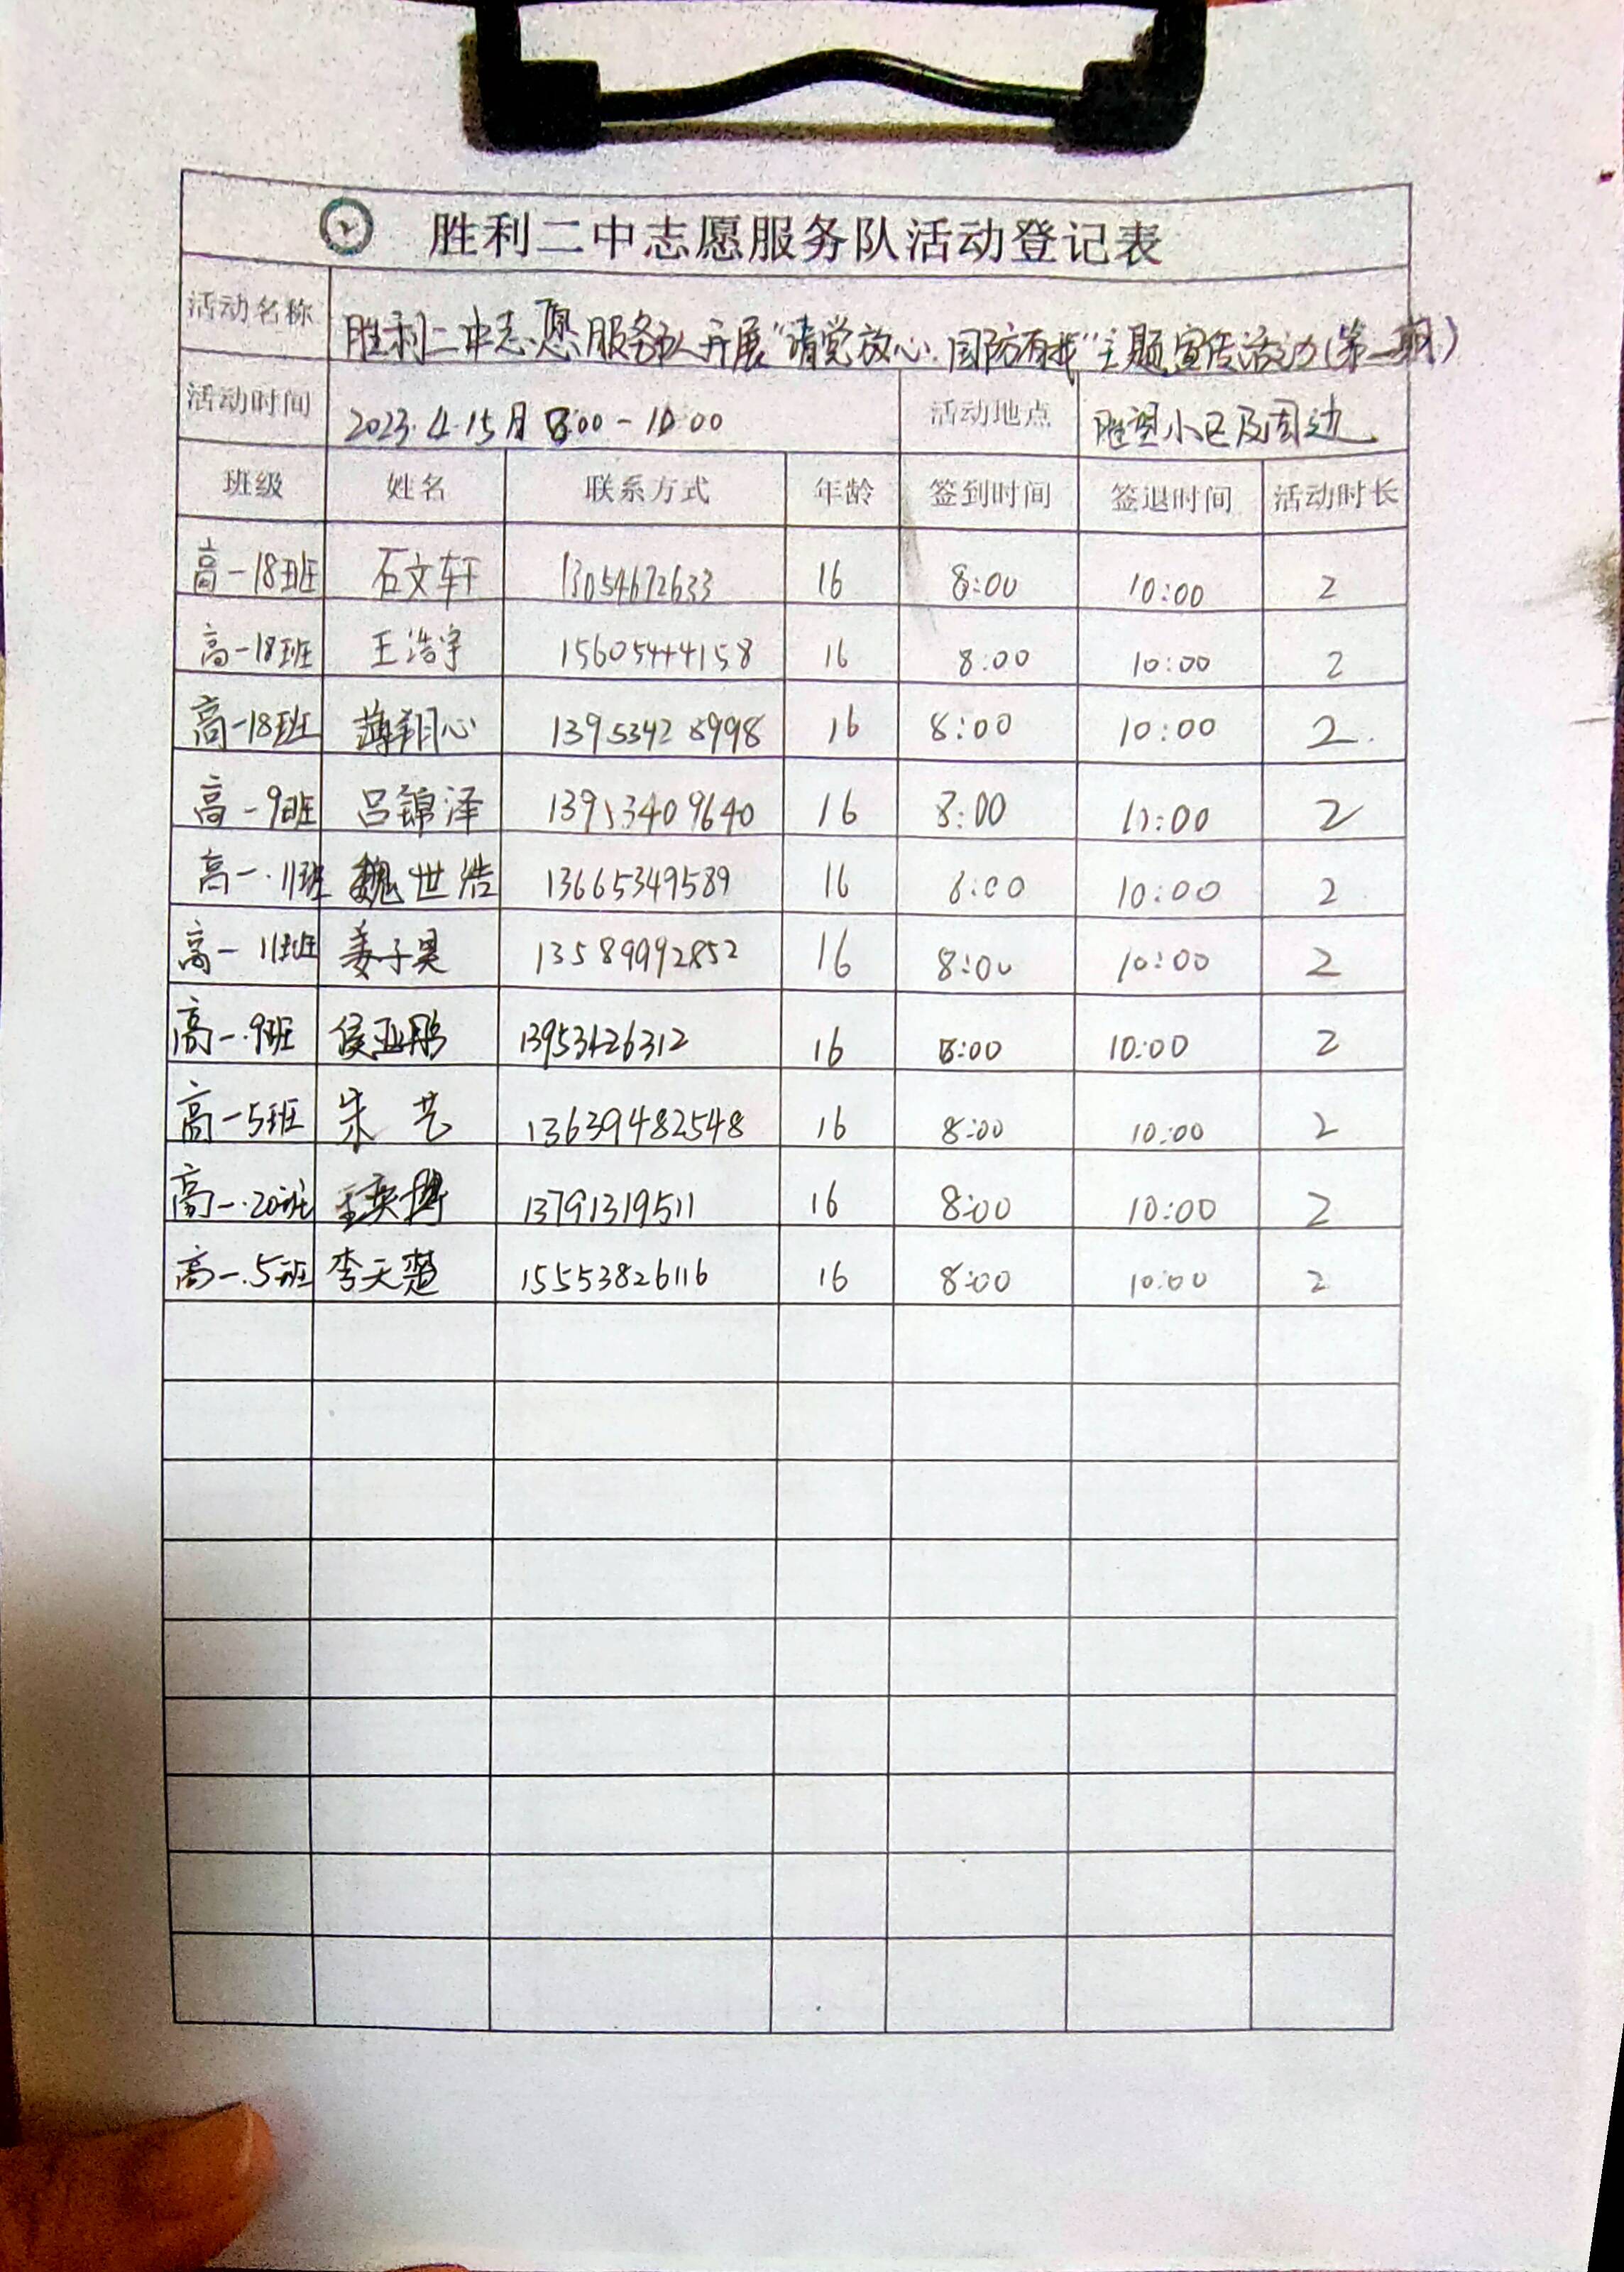 胜利二中志愿服务队活动登记表
活动名称 胜利二中志愿服务队开展"请党放心、国防有我"主题宣传活动(第二期)
活动时间 2023.4.15月 8:00-10:00 活动地点 胜望小区及周边
班级 姓名 联系方式 年龄 签到时间 签退时间 活动时长
高一18班 石文轩 13054672633 16 8:00 10:00 2
高一18班 王浩宇 15605444158 16 8:00 10:00 2
高一18班 薄翔心 13953428998 16 8:00 10:00 2
高一9班 吕锦泽 13953409640 16 8:00 10:00 2
高一.11班 魏世浩 13665349589 16 8:00 10:00 2
高一11班 姜子昊 13589992852 16 8:00 10:00 2
高一.9班 侯亚彤 16 8:00 10:00 2
高一5班 朱艺 13639482548 16 8:00 10:00 2
高一.20班 13791319511 16 8:00 10:00 2
高一.5班 李天楚 15553826116 16 8:00 10:00 2